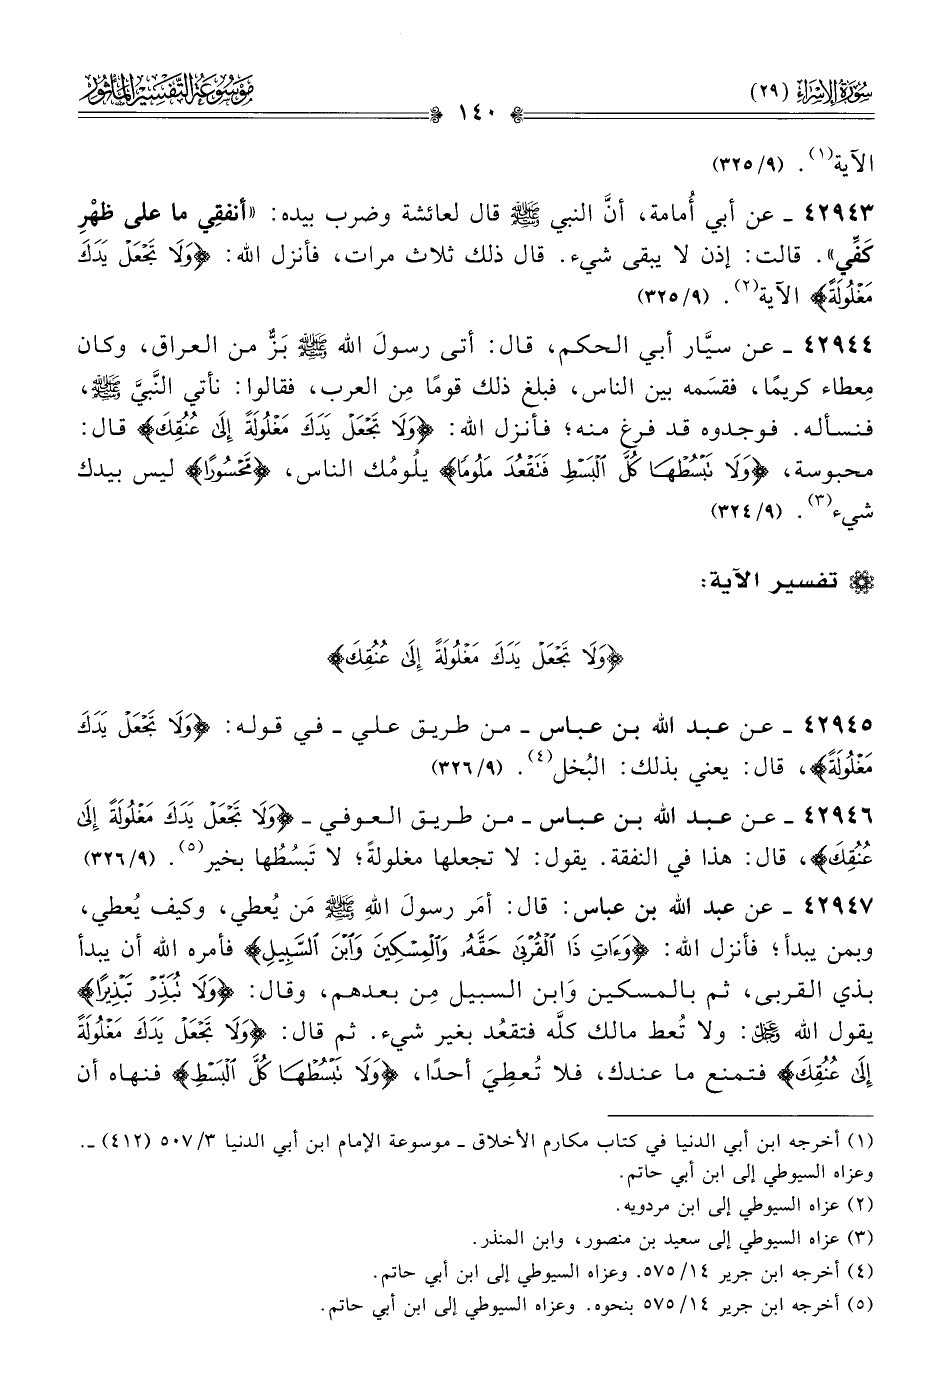 سُورَةُ الإِسْرَاءِ (٢٩)
١٤٠
مَوْسُوعَةُ التَّفْسِيرِ المَأْثُورِ
الآية(١). (٣٢٥/٩)
٤٢٩٤٣ ـ عن أبي أُمامة، أنَّ النبي ﷺ قال لعائشة وضرب بيده: «أنفقِي ما على ظهْرِ
كَفِّي». قالت: إذن لا يبقى شيء. قال ذلك ثلاث مرات، فأنزل الله: ﴿وَلَا تَجْعَلْ يَدَكَ
مَغْلُولَةً﴾ الآية(٢). (٣٢٥/٩)
٤٢٩٤٤ ـ عن سيَّار أبي الحكم، قال: أتى رسولَ الله ﷺ بَزٌّ من العراق، وكان
مِعطاء كريمًا، فقسَمه بين الناس، فبلغ ذلك قومًا مِن العرب، فقالوا: نأتي النَّبيَّ ﷺ،
فنسأله. فوجدوه قد فرغ منه؛ فأنزل الله: ﴿وَلَا تَجْعَلْ يَدَكَ مَغْلُولَةً إِلَىٰ عُنُقِكَ﴾ قال:
محبوسة، ﴿وَلَا تَبْسُطْهَا كُلَّ ٱلْبَسْطِ فَتَقْعُدَ مَلُومًا﴾ يلُومُك الناس، ﴿مَّحْسُورًا﴾ ليس بيدك
شيء(٣). (٣٢٤/٩)
تفسير الآية:
﴿وَلَا تَجْعَلْ يَدَكَ مَغْلُولَةً إِلَىٰ عُنُقِكَ﴾
٤٢٩٤٥ ـ عن عبد الله بن عباس ـ من طريق علي ـ في قوله: ﴿وَلَا تَجْعَلْ يَدَكَ
مَغْلُولَةً﴾، قال: يعني بذلك: البُخل(٤). (٣٢٦/٩)
٤٢٩٤٦ ـ عن عبد الله بن عباس ـ من طريق العوفي ـ ﴿وَلَا تَجْعَلْ يَدَكَ مَغْلُولَةً إِلَىٰ
عُنُقِكَ﴾، قال: هذا في النفقة. يقول: لا تجعلها مغلولةً؛ لا تَبسُطُها بخير(٥). (٣٢٦/٩)
٤٢٩٤٧ ـ عن عبد الله بن عباس: قال: أمَر رسولَ اللهِ ﷺ مَن يُعطي، وكيف يُعطي،
وبمن يبدأ؛ فأنزل الله: ﴿وَءَاتِ ذَا ٱلْقُرْبَىٰ حَقَّهُۥ وَٱلْمِسْكِينَ وَٱبْنَ ٱلسَّبِيلِ﴾ فأمره الله أن يبدأ
بذي القربى، ثم بالمسكين وَابن السبيل مِن بعدهم، وقال: ﴿وَلَا تُبَذِّرْ تَبْذِيرًا﴾
يقول الله ﷻ: ولا تُعط مالك كلَّه فتقعُد بغير شيء. ثم قال: ﴿وَلَا تَجْعَلْ يَدَكَ مَغْلُولَةً
إِلَىٰ عُنُقِكَ﴾ فتمنع ما عندك، فلا تُعطِيَ أحدًا، ﴿وَلَا تَبْسُطْهَا كُلَّ ٱلْبَسْطِ﴾ فنهاه أن
(١) أخرجه ابن أبي الدنيا في كتاب مكارم الأخلاق ـ موسوعة الإمام ابن أبي الدنيا ٥٠٧/٣ (٤١٢) ـ.
وعزاه السيوطي إلى ابن أبي حاتم.
(٢) عزاه السيوطي إلى ابن مردويه.
(٣) عزاه السيوطي إلى سعيد بن منصور، وابن المنذر.
(٤) أخرجه ابن جرير ٥٧٥/١٤. وعزاه السيوطي إلى ابن أبي حاتم.
(٥) أخرجه ابن جرير ٥٧٥/١٤ بنحوه. وعزاه السيوطي إلى ابن أبي حاتم.